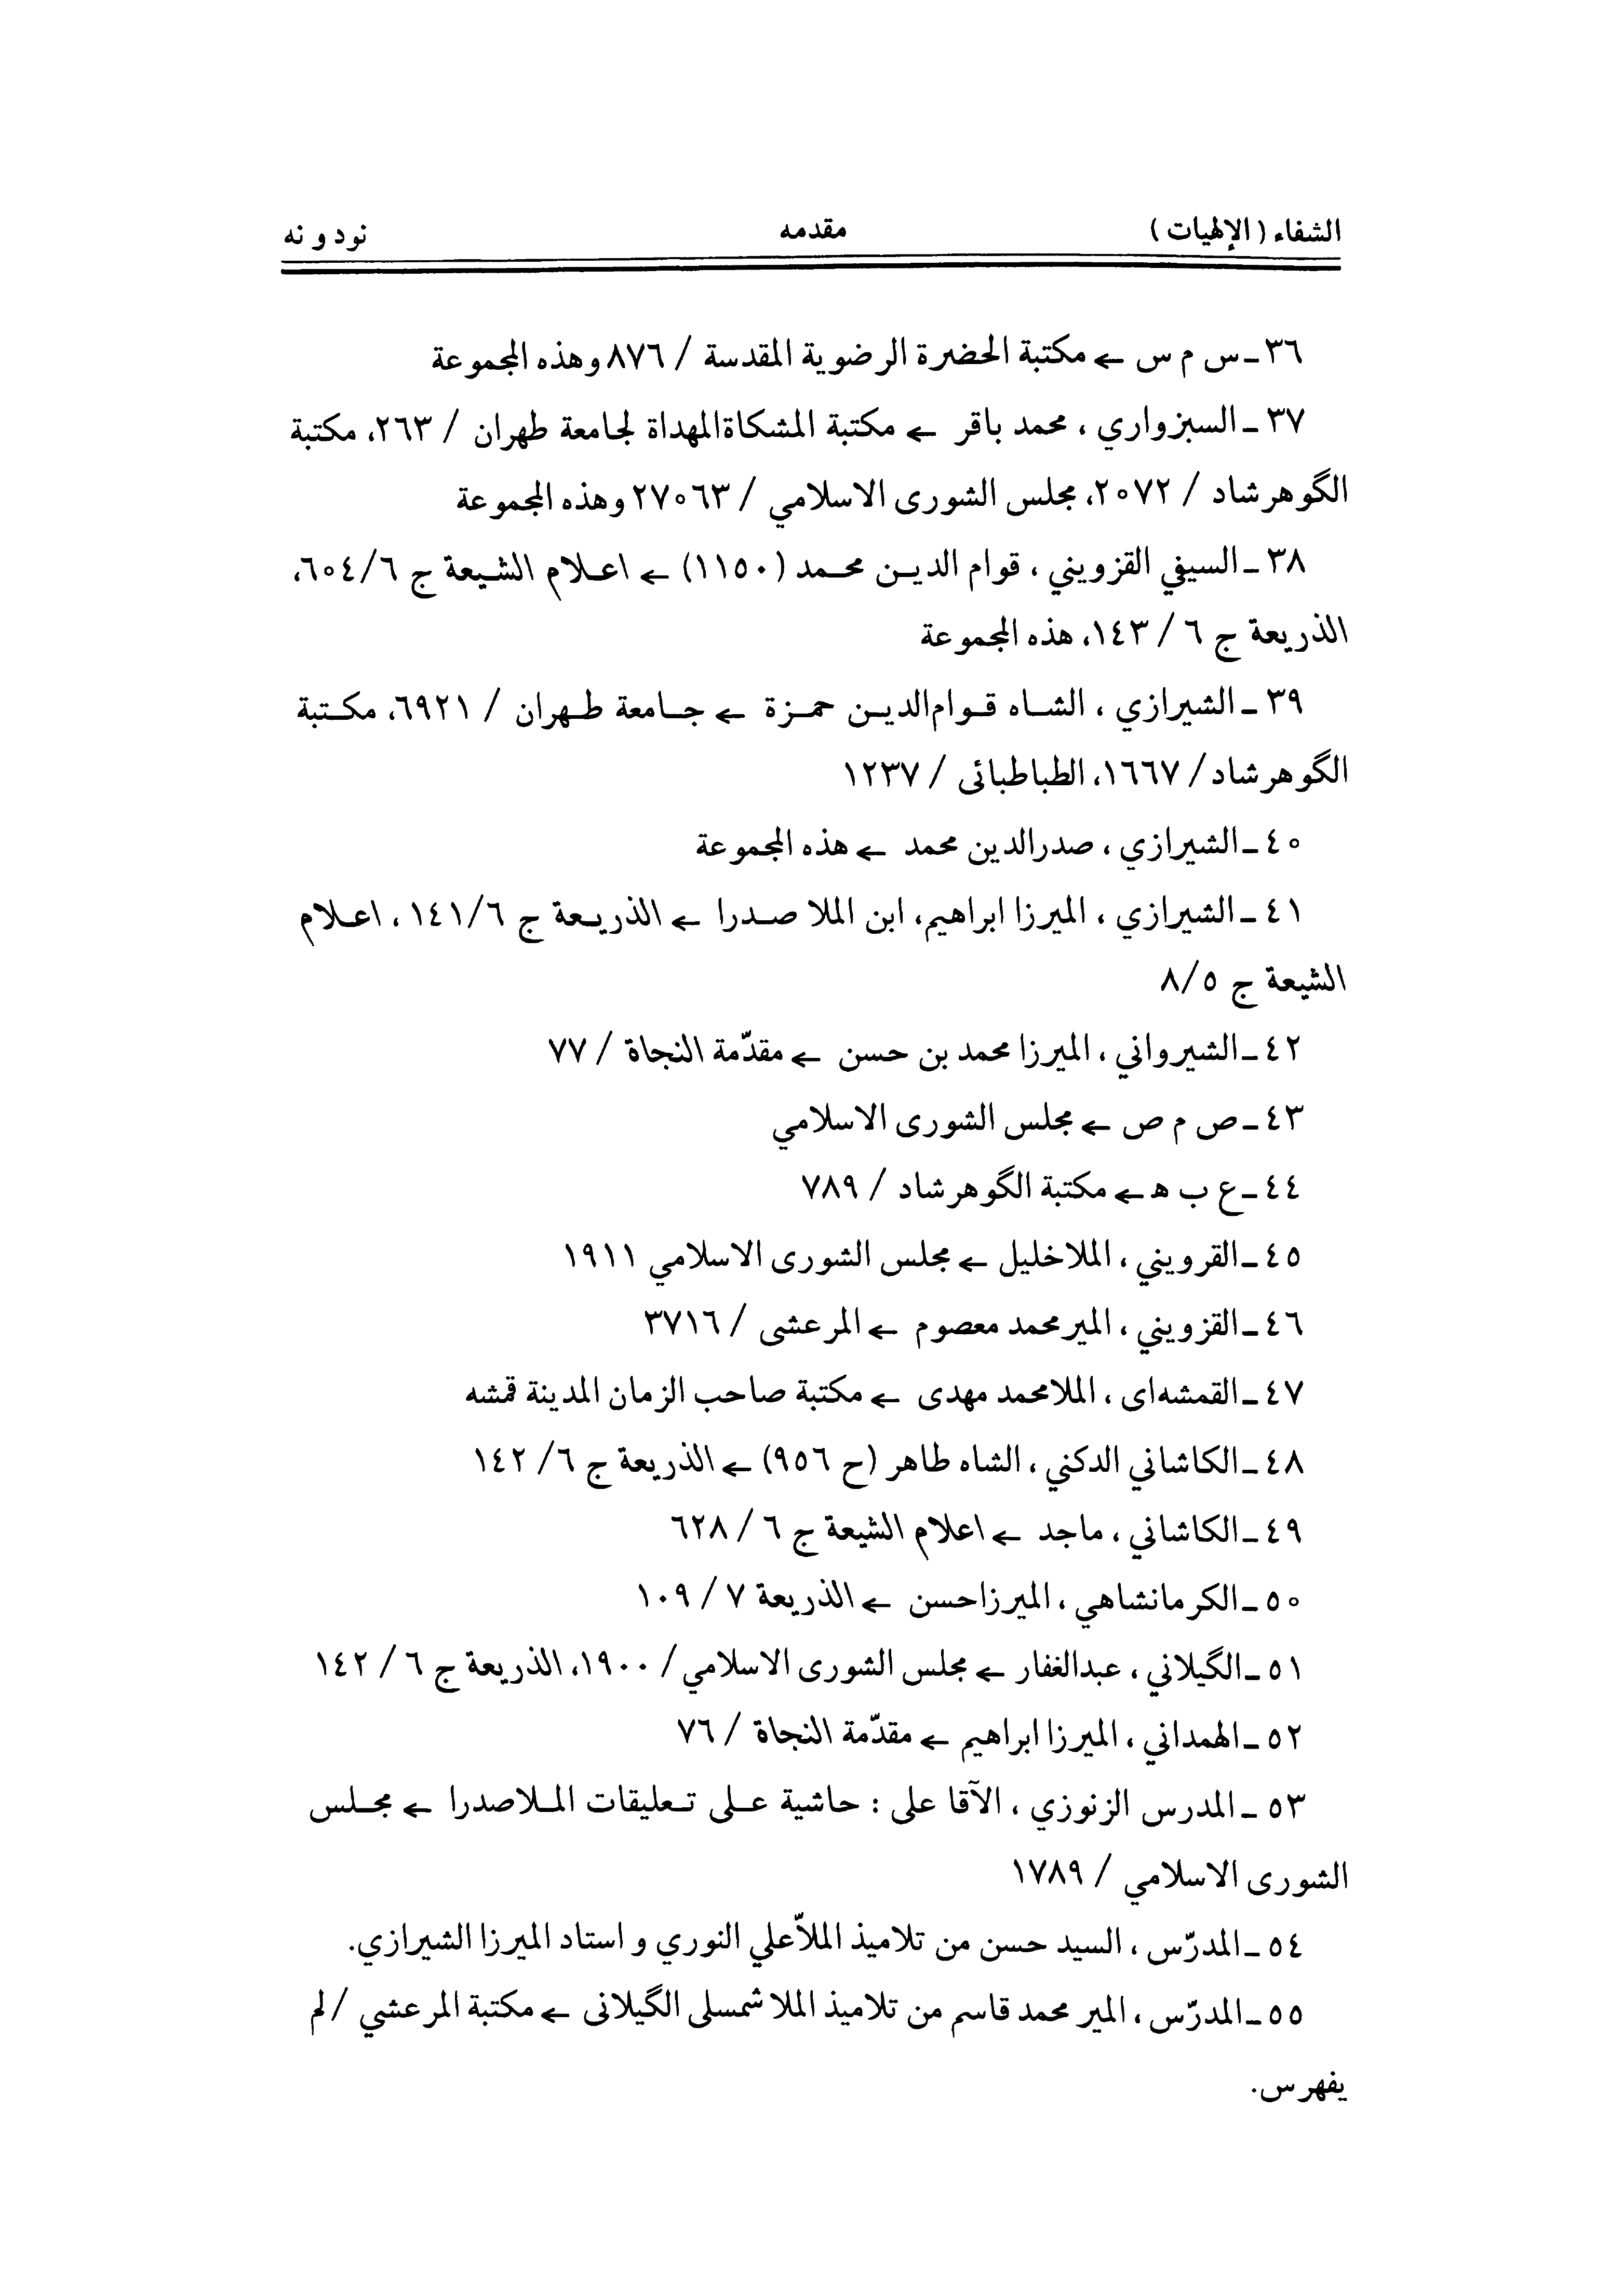 الشفاء (الإلهيات) مقدمه نود و نه
٣٦ ـ س م س ← مكتبة الحضرة الرضوية المقدسة / ٨٧٦ وهذه المجموعة
٣٧ ـ السبزواري ، محمد باقر ← مكتبة المشكاةالمهداة لجامعة طهران / ٢٦٣، مكتبة
الگوهرشاد / ٢٠٧٢، مجلس الشورى الاسلامي / ٢٧٠٦٣ وهذه المجموعة
٣٨ ـ السيفي القزويني ، قوام الديـن محـمد (١١٥٠) ← اعـلام الشـيعة ج ٦٠٤/٦،
الذريعة ج ٦ / ١٤٣، هذه المجموعة
٣٩ ـ الشيرازي ، الشـاه قـوام‌الديـن حمـزة ← جـامعة طـهران / ٦٩٢١، مكـتبة
الگوهرشاد / ١٦٦٧، الطباطبائى / ١٢٣٧
٤٠ ـ الشيرازي ، صدرالدين محمد ← هذه المجموعة
٤١ ـ الشيرازي ، الميرزا ابراهيم، ابن الملا صـدرا ← الذريـعة ج ١٤١/٦ ، اعـلام
الشيعة ج ٨/٥
٤٢ ـ الشيرواني ، الميرزا محمد بن حسن ← مقدّمة النجاة / ٧٧
٤٣ ـ ص م ص ← مجلس الشورى الاسلامي
٤٤ ـ ع ب ه ← مكتبة الگوهرشاد / ٧٨٩
٤٥ ـ القرويني ، الملاخليل ← مجلس الشورى الاسلامي ١٩١١
٤٦ ـ القزويني ، الميرمحمد معصوم ← المرعشى / ٣٧١٦
٤٧ ـ القمشه‌اى ، الملامحمد مهدى ← مكتبة صاحب الزمان المدينة قمشه
٤٨ ـ الكاشاني الدكني ، الشاه طاهر (ح ٩٥٦) ← الذريعة ج ٦/ ١٤٢
٤٩ ـ الكاشاني ، ماجد ← اعلام الشيعة ج ٦ / ٦٢٨
٥٠ ـ الكرمانشاهي ، الميرزاحسن ← الذريعة ٧ / ١٠٩
٥١ ـ الگيلاني ، عبدالغفار ← مجلس الشورى الاسلامي / ١٩٠٠، الذريعة ج ٦ / ١٤٢
٥٢ ـ الهمداني ، الميرزا ابراهيم ← مقدّمة النجاة / ٧٦
٥٣ ـ المدرس الزنوزي ، الآقا على : حاشية عـلى تـعليقات المـلاصدرا ← مجـلس
الشورى الاسلامي / ١٧٨٩
٥٤ ـ المدرّس ، السيد حسن من تلاميذ الملاّعلي النوري و استاد الميرزا الشيرازي.
٥٥ ـ المدرّس ، المير محمد قاسم من تلاميذ الملا شمسلى الگيلانى ← مكتبة المرعشي / لم
يفهرس.